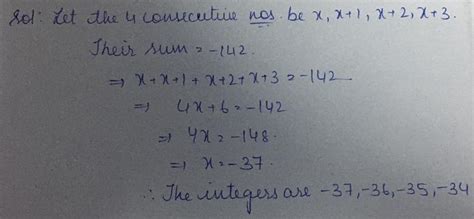 Sol: Let the 4 consecutive nos. be x, x+1, x+2, x+3.
Their sum = -142.
⇒ x+x+1+x+2+x+3 = -142
⇒ 4x+6 = -142
⇒ 4x = -148.
⇒ x = -37.
∴ The integers are -37, -36, -35, -34